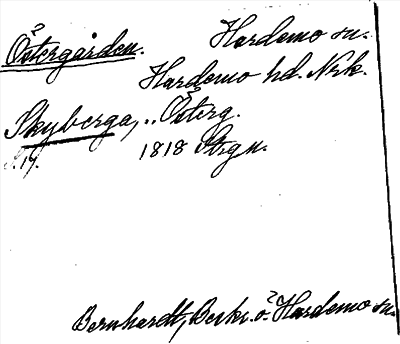 Östergården. Hardemo sn.
Hardemo hd. Nrk.
Skyberga, „ Österg.
S. 17. 1818 Strgn.
Bernhardt, Beskr. ö. Hardemo sn.